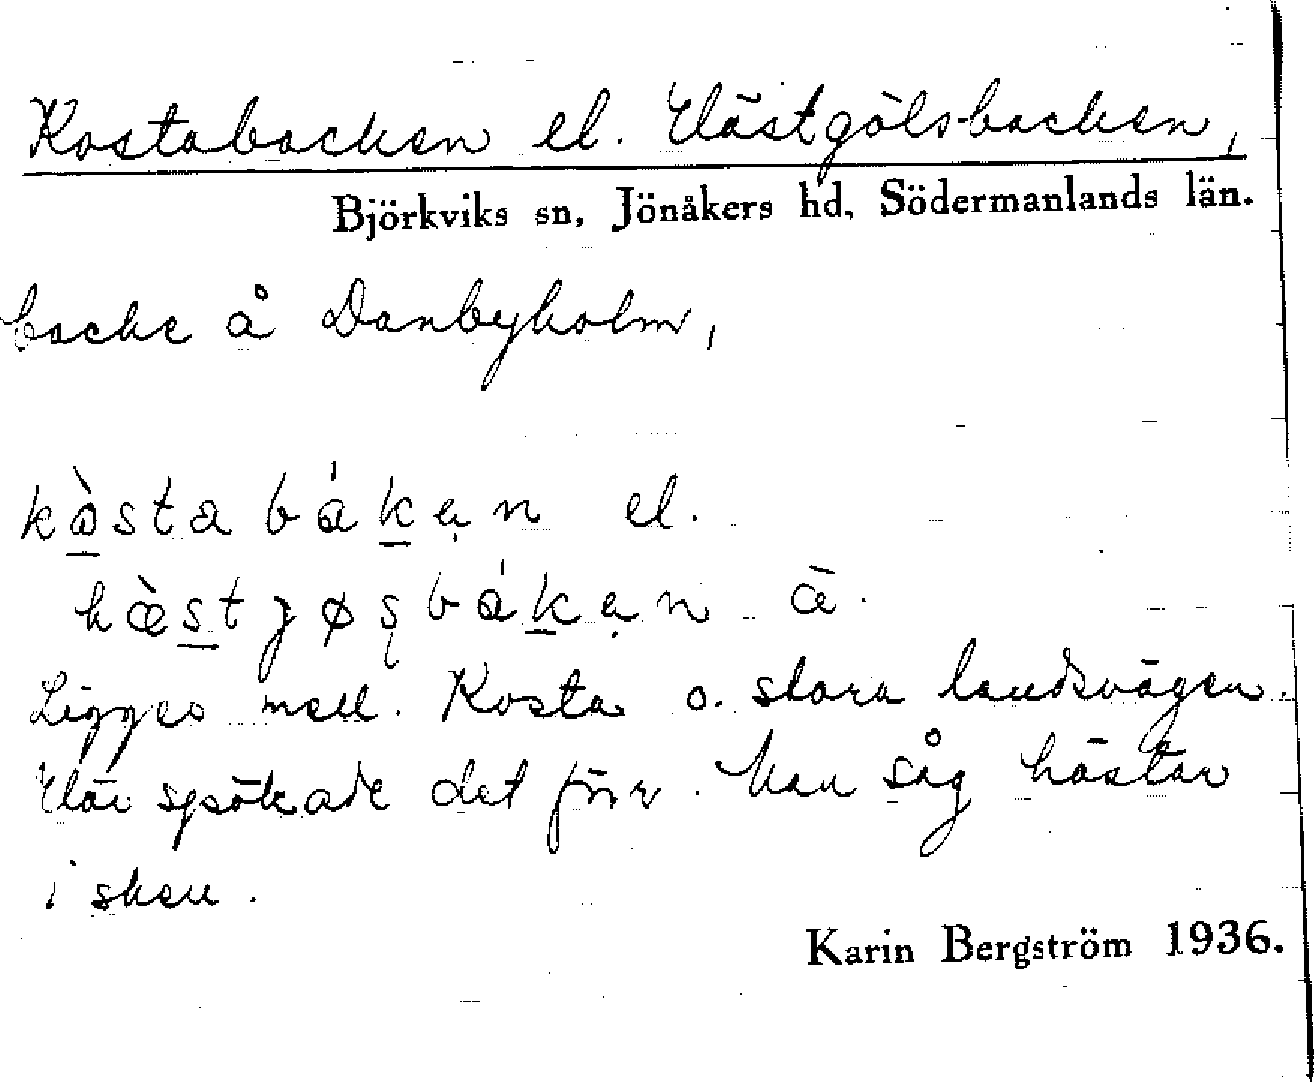 Kostabacken el. Hästgölsbacken,
Björkviks sn, Jönåkers hd, Södermanlands län.
backe å Danbyholm,
kòstabákạn el.
hæ̀stȷøsbákạn ä.
Ligger mell. Kosta o. stora landsvägen.
Här spökade det förr. Man såg hästar
i sken.
Karin Bergström 1936.